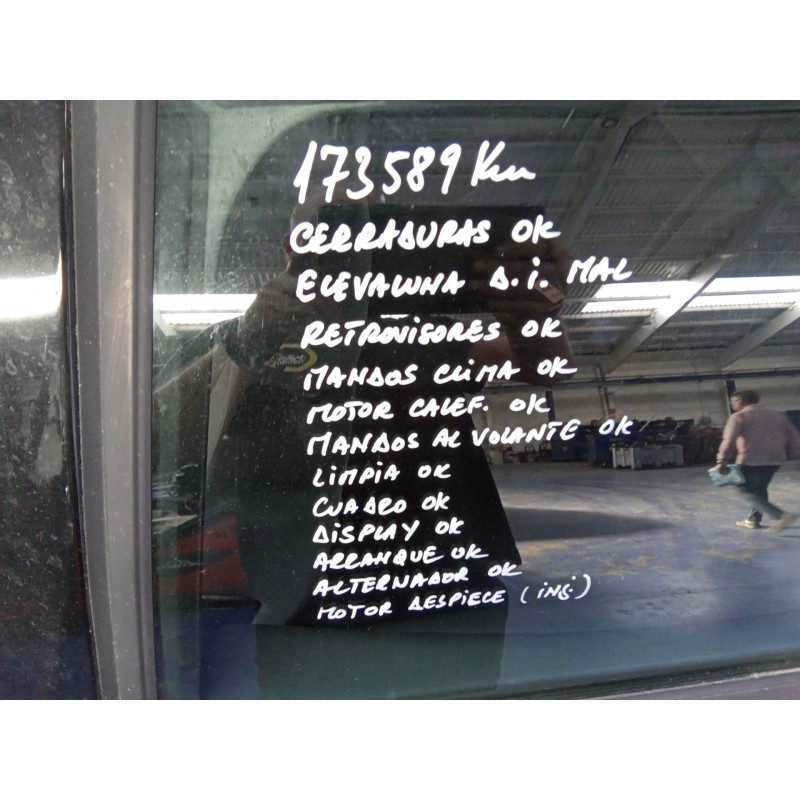 173589 Km
CERRADURAS OK
ELEVALUNA D.I. MAL
RETROVISORES OK
MANDOS CLIMA OK
MOTOR CALEF. OK
MANDOS AL VOLANTE OK
LIMPIA OK
CUADRO OK
DISPLAY OK
ARRANQUE OK
ALTERNADOR OK
MOTOR DESPIECE (INJ.)